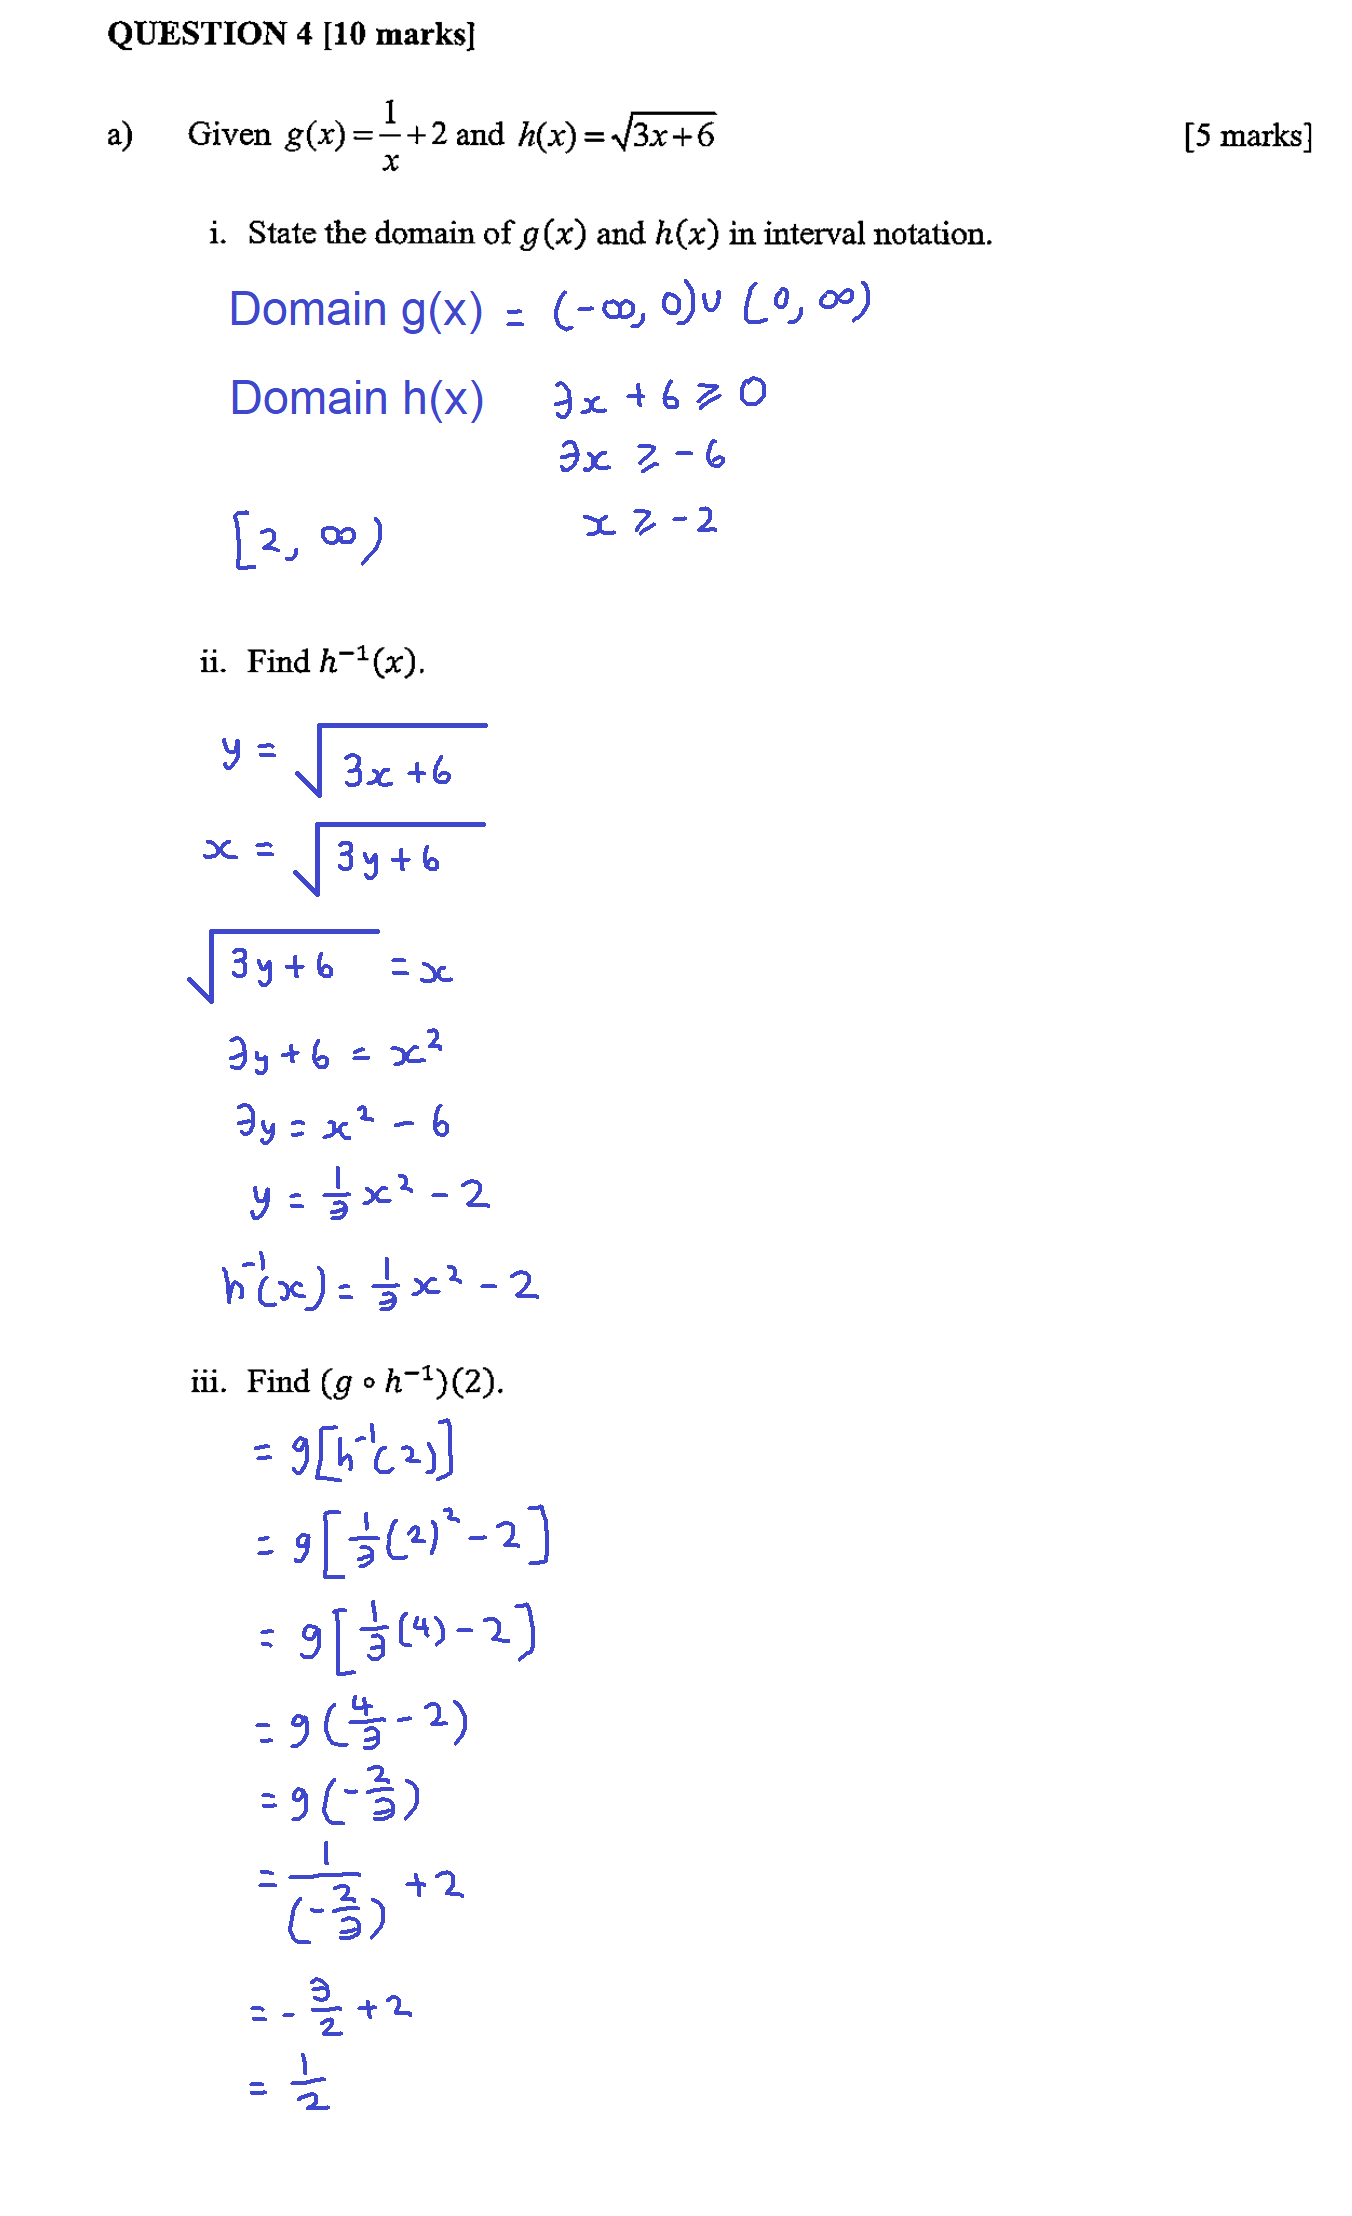 QUESTION 4 [10 marks]
a) Given g(x) = 1/x + 2 and h(x) = √(3x+6) [5 marks]
i. State the domain of g(x) and h(x) in interval notation.
Domain g(x) = (-∞, 0) ∪ (0, ∞)
Domain h(x) 3x + 6 ≥ 0
3x ≥ -6
x ≥ -2
[2, ∞)
ii. Find h⁻¹(x).
y = √(3x+6)
x = √(3y+6)
√(3y+6) = x
3y + 6 = x²
3y = x² - 6
y = 1/3 x² - 2
h⁻¹(x) = 1/3 x² - 2
iii. Find (g ∘ h⁻¹)(2).
= g[h⁻¹(2)]
= g[1/3 (2)² - 2]
= g[1/3 (4) - 2]
= g(4/3 - 2)
= g(-2/3)
= 1/(-2/3) + 2
= -3/2 + 2
= 1/2